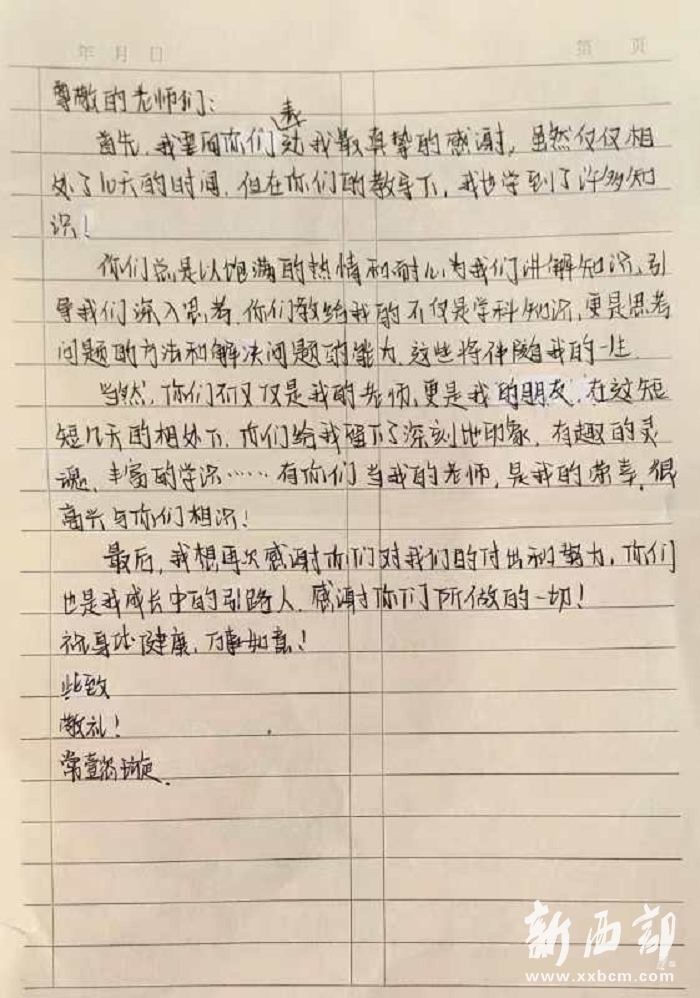 年 月 日 第 页
尊敬的老师们：
首先，我要向你们表达我最真挚的感谢，虽然仅仅相
处了10天的时间，但在你们的教导下，我也学到了许多知
识！
你们总是以饱满的热情和耐心为我们讲解知识，引
导我们深入思考，你们教给我的不仅是学科知识，更是思考
问题的方法和解决问题的能力，这些将伴随我的一生.
当然，你们不仅仅是我的老师，更是我的朋友，在这短
短几天的相处下，你们给我留下了深刻地印象，有趣的灵
魂、丰富的学识……有你们当我的老师，是我的荣幸，很
高兴与你们相识！
最后，我想再次感谢你们对我们的付出和努力，你们
也是我成长中的引路人，感谢你们所做的一切！
祝身体健康，万事如意！
此致
敬礼！
常
新西部
www.xxbcm.com